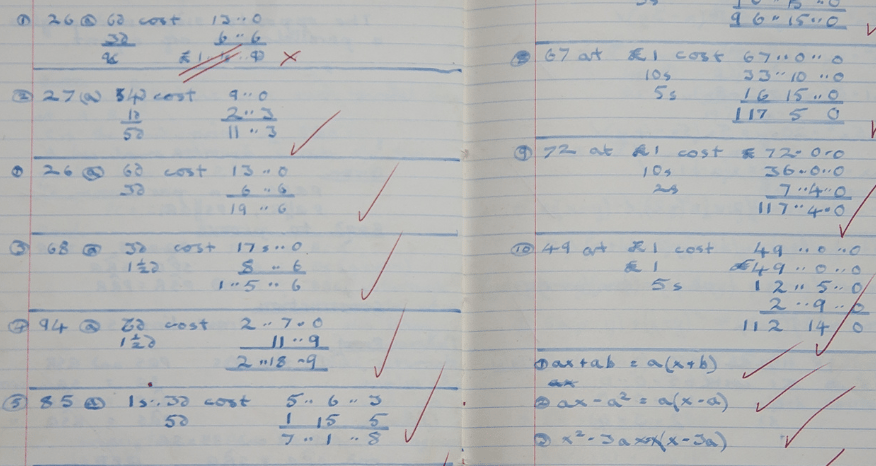 ① 26 @ 6d cost 13..0
3d 6..6
② 27 @ 4d cost 9..0
1d 2..3
5d 11..3
26 @ 6d cost 13..0
3d 6..6
19..6
③ 68 @ 3d cost 17s..0
1½d 8..6
1..5..6
④ 94 @ 6d cost 2..7..0
1½d 11..9
2..18..9
⑤ 85 @ 1s..3d cost 5..6..3
5d 1 15 5
7..1..8
96..15..0
67 at £1 cost 67..0..0
10s 33..10..0
5s 16 15..0
117 5 0
⑨ 72 at £1 cost £72..0..0
10s 36..0..0
2s 7..4..0
117..4..0
⑩ 49 at £1 cost 49..0..0
£1 £49..0..0
5s 12..5..0
2..9..0
112 14 0
① ax+ab = a(x+b)
② ax-a² = a(x-a)
③ x²-3ax (x-3a)